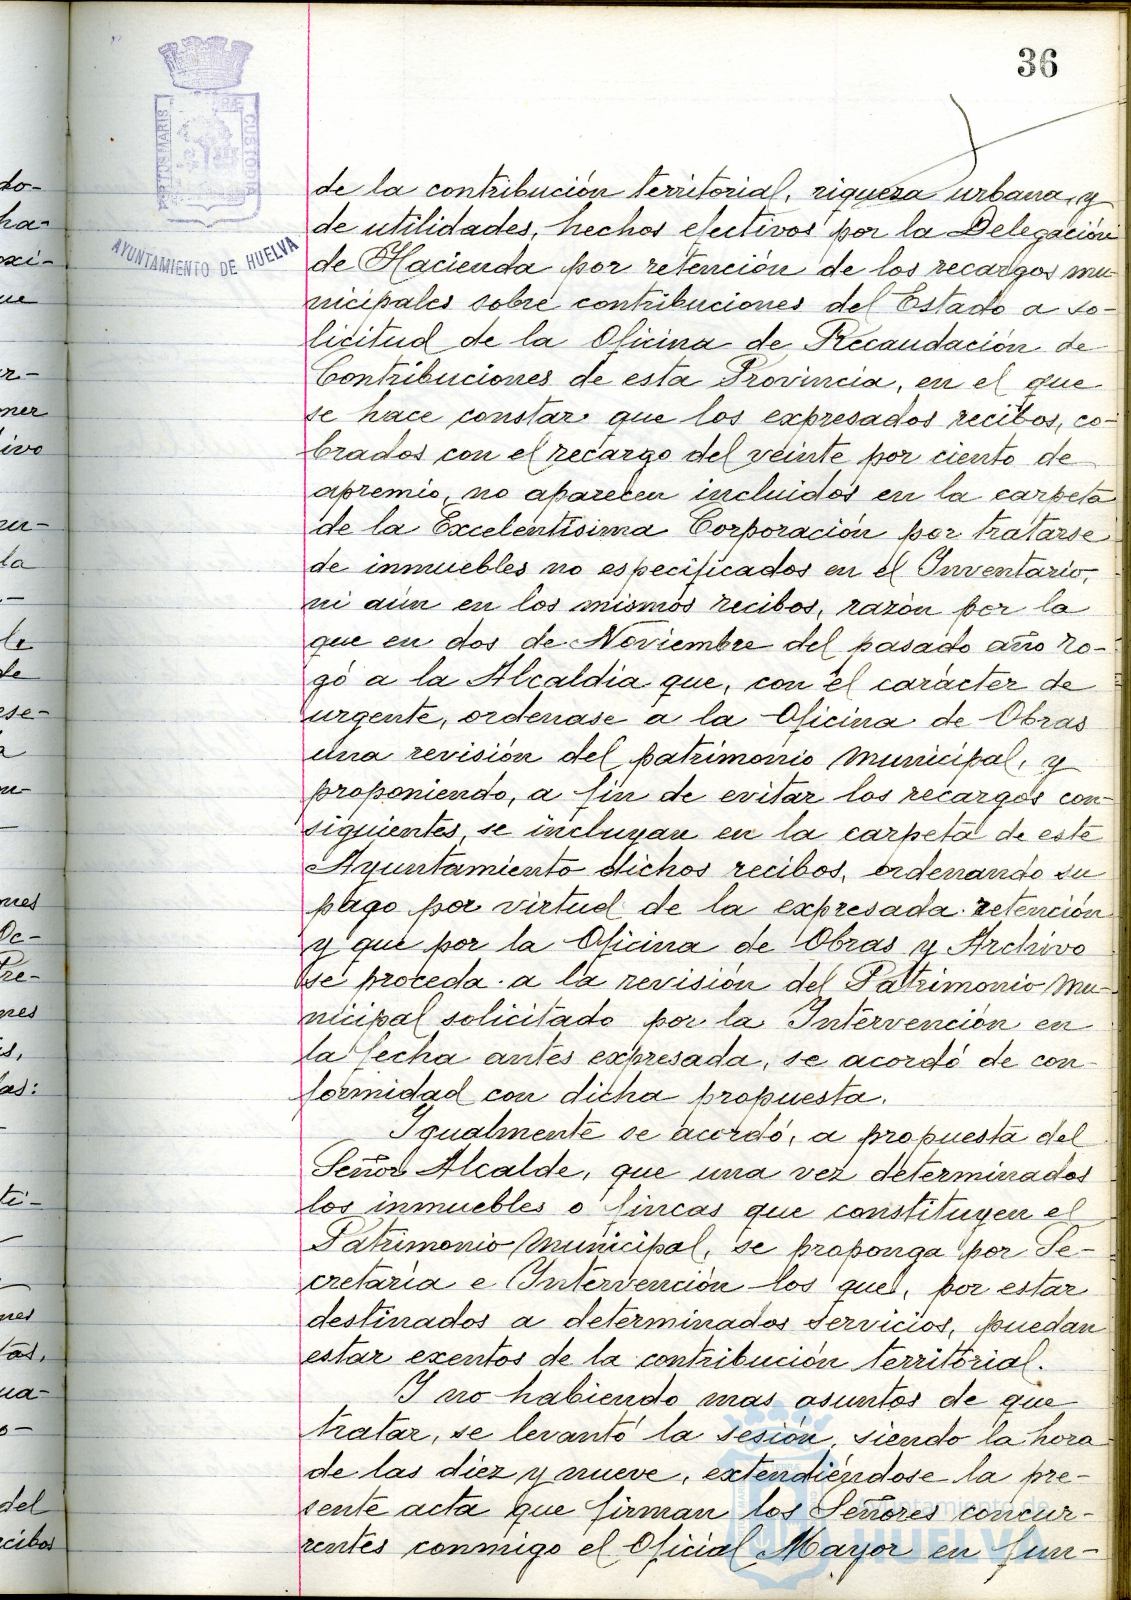 36
PORTUS MARIS
CUSTODIA
AYUNTAMIENTO DE HUELVA
de la contribución territorial, riqueza urbana, y
de utilidades, hechos efectivos por la Delegación
de Hacienda por retención de los recargos mu-
nicipales sobre contribuciones del Estado a so-
licitud de la Oficina de Recaudación de
Contribuciones de esta Provincia, en el que
se hace constar que los expresados recibos, co-
brados con el recargo del veinte por ciento de
apremio, no aparecen incluidos en la carpeta
de la Excelentísima Corporación por tratarse
de inmuebles no especificados en el Inventario,
ni aún en los mismos recibos, razón por la
que en dos de Noviembre del pasado año ro-
gó a la Alcaldía que, con el carácter de
urgente, ordenase a la Oficina de Obras
una revisión del patrimonio Municipal, y
proponiendo, a fin de evitar los recargos con-
siguientes, se incluyan en la carpeta de este
Ayuntamiento dichos recibos, ordenando su
pago por virtud de la expresada retención
y que por la Oficina de Obras y Archivo
se proceda a la revisión del Patrimonio Mu-
nicipal solicitado por la Intervención en
la fecha antes expresada, se acordó de con-
formidad con dicha propuesta.
Igualmente se acordó, a propuesta del
Señor Alcalde, que una vez determinados
los inmuebles o fincas que constituyen el
Patrimonio Municipal, se proponga por Se-
cretaría e Intervención los que, por estar
destinados a determinados servicios, puedan
estar exentos de la contribución territorial.
Y no habiendo mas asuntos de que
tratar, se levantó la sesión, siendo la hora
de las diez y nueve, extendiéndose la pre-
sente acta que firman los Señores concur-
rentes conmigo el Oficial Mayor en fun-
Ayuntamiento de
HUELVA